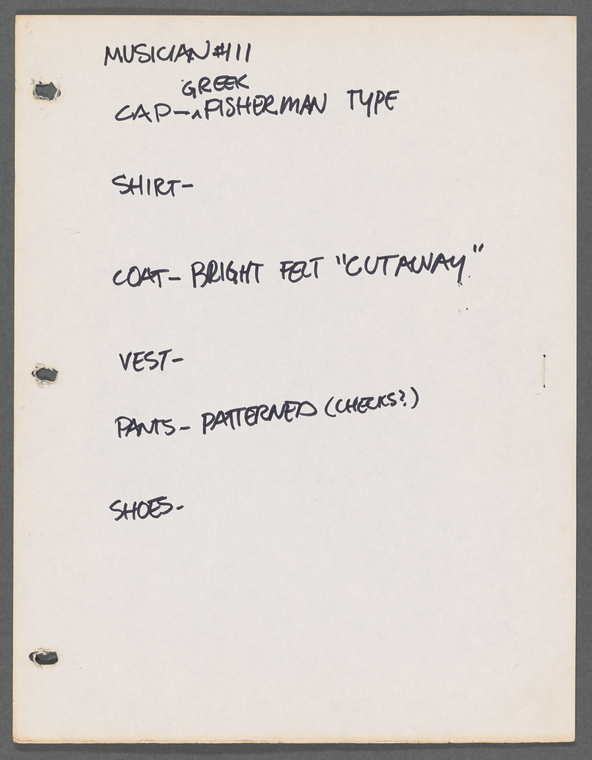 MUSICIAN #111
GREEK
CAP-^FISHERMAN TYPE
SHIRT-
COAT- BRIGHT FELT "CUTAWAY"
VEST-
PANTS- PATTERNED (CHECKS?)
SHOES-